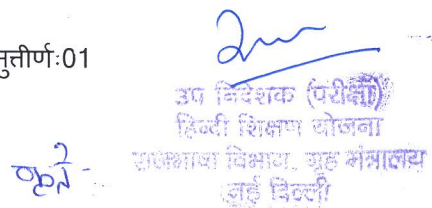 नुत्तीर्ण:01
उप निदेशक (परीक्षा)
हिन्दी शिक्षण योजना
राजभाषा विभाग, गृह मंत्रालय
नई दिल्ली